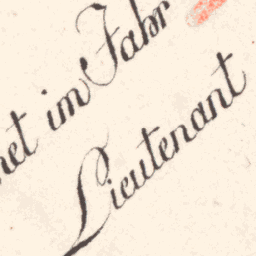 net im Jahr
Lieutenant